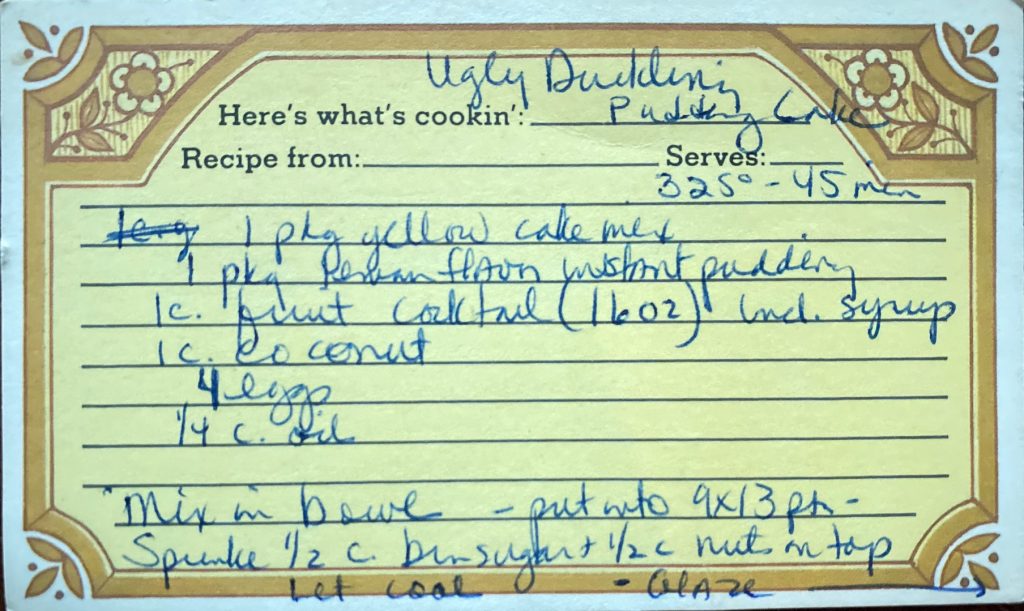 Ugly Duckling
Here's what's cookin': Pudding Cake
Recipe from: Serves:
325° - 45 min
1 pkg yellow cake mix
1 pkg lemon flavor instant pudding
1c. fruit cocktail (16oz) incl. syrup
1c. coconut
4 eggs
1/4 c. oil
Mix in bowl - put into 9x13 pan -
Sprinkle 1/2 c. brn sugar + 1/2 c nuts on top
Let cool - GLAZE →